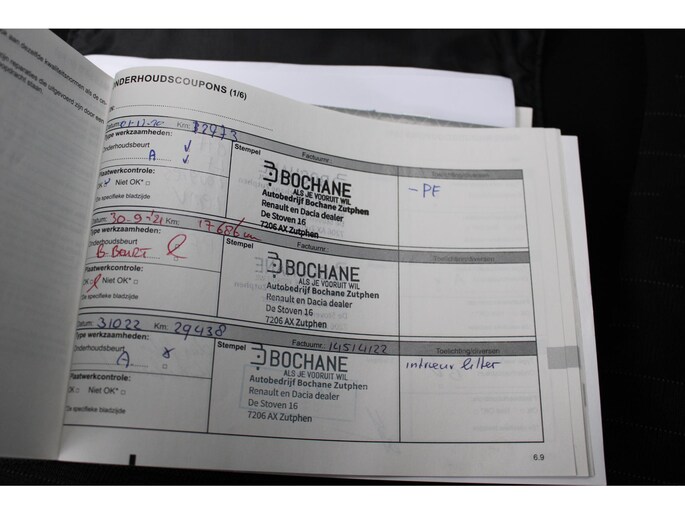 NDERHOUDSCOUPONS (1/6)
01-12-20 Km:
Type werkzaamheden:
Onderhoudsbeurt
A
Plaatwerkcontrole:
OK Niet OK*
De specifieke bladzijde
Stempel Factuurnr.:
BOCHANE
ALS JE VOORUIT WIL
Autobedrijf Bochane Zutphen
Renault en Dacia dealer
De Stoven 16
7206 AX Zutphen
Toelichting/diversen
-PF
Datum: 30-9-'21 Km: 17686
Type werkzaamheden:
Onderhoudsbeurt
B-Beurt
Plaatwerkcontrole:
OK Niet OK*
De specifieke bladzijde
Stempel Factuurnr.:
BOCHANE
ALS JE VOORUIT WIL
Autobedrijf Bochane Zutphen
Renault en Dacia dealer
De Stoven 16
7206 AX Zutphen
Toelichting/diversen
Datum: 31022 Km: 29438
Type werkzaamheden:
Onderhoudsbeurt
A
Plaatwerkcontrole:
OK Niet OK*
De specifieke bladzijde
Stempel Factuurnr.: 14514122
BOCHANE
ALS JE VOORUIT WIL
Autobedrijf Bochane Zutphen
Renault en Dacia dealer
De Stoven 16
7206 AX Zutphen
Toelichting/diversen
6.9